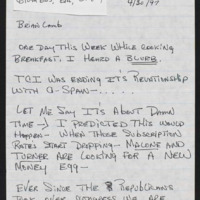 4/30/97
Brian Lamb
ONE DAY THIS WEEK WHILE COOKING
BREAKFAST, I HEARD A BLURB
TCI WAS ENDING IT'S RELATIONSHIP
WITH C-SPAN-----....
LET ME SAY IT'S ABOUT DAMN
TIME -- I PREDICTED THIS WOULD
HAPPEN - WHEN THOSE SUBSCRIPTION
RATES START DROPPING - MALONE AND
TURNER ARE LOOKING FOR A NEW
MONEY EGG--
EVER SINCE THE REPUBLICANS
TOOK OVER CONGRESS WE ARE